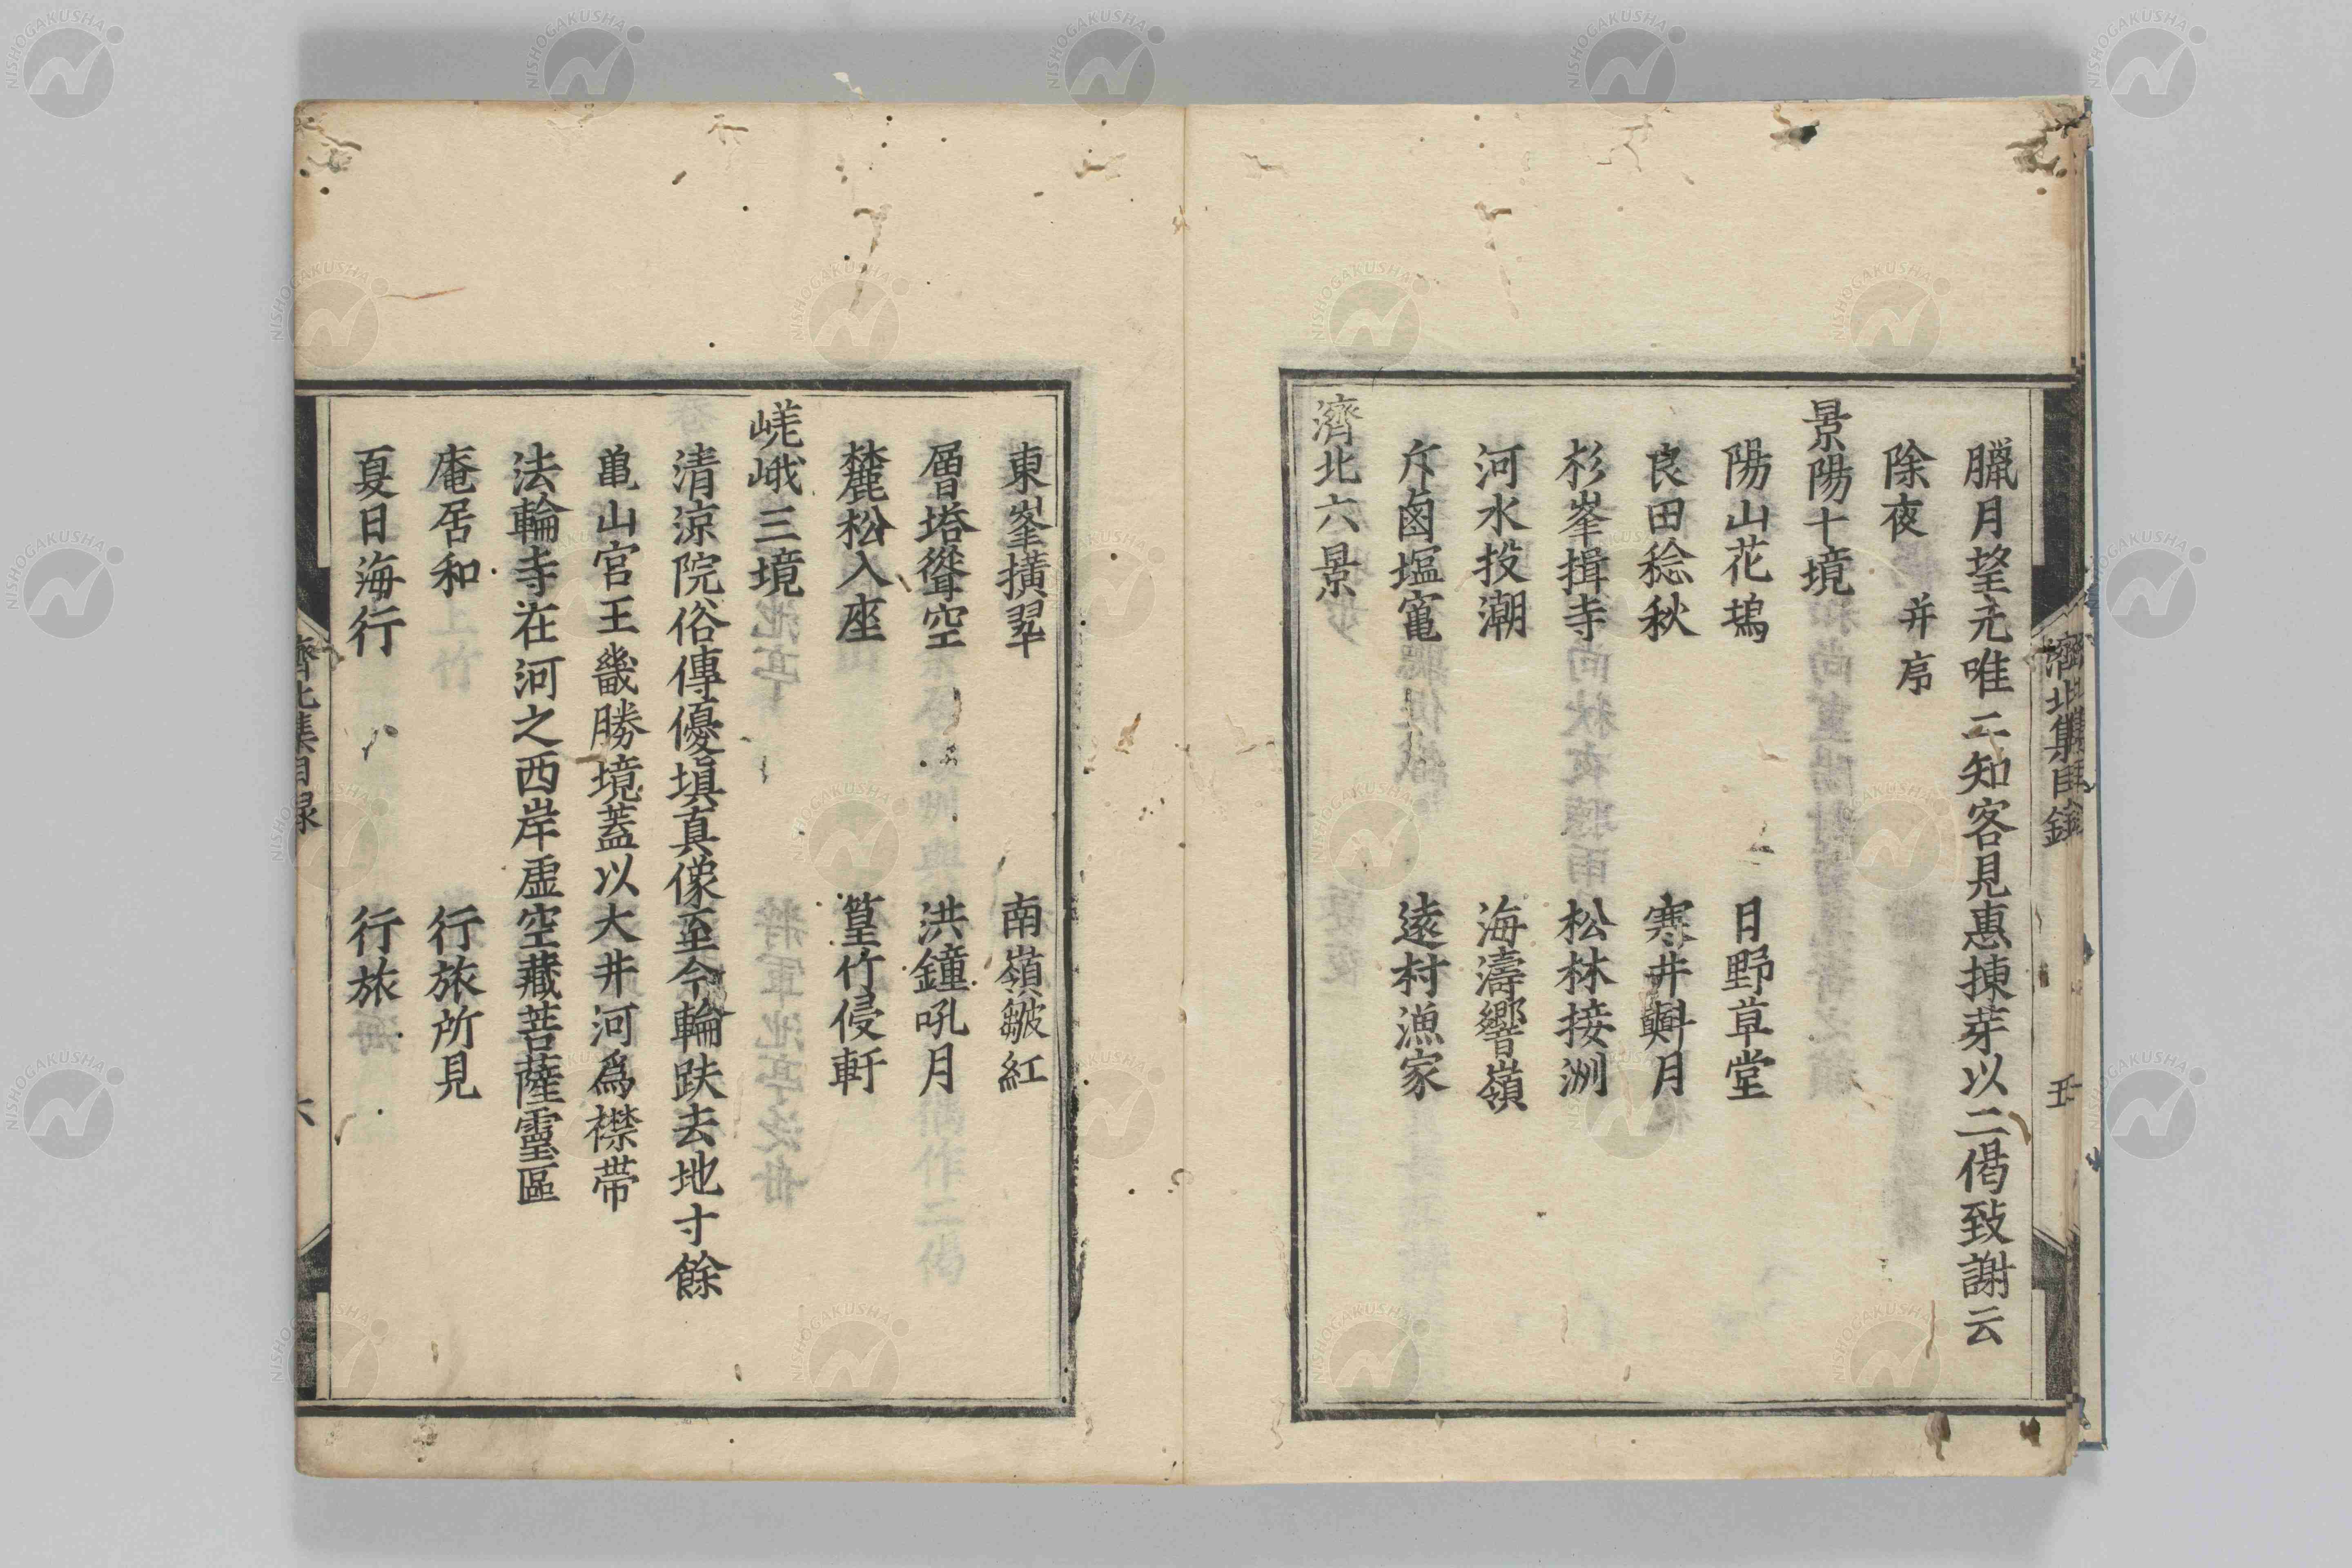 臘月望充唯二知客見惠揀芽以二偈致謝云
除夜 并序
景陽十境
陽山花塢 日野草堂
良田稔秋 寒井㪺月
杉峯揖寺 松林接洲
河水投潮 海濤響嶺
斥鹵塩竃 遠村漁家
濟北六景
濟北集目録 五
東峯擁翠 南嶺皺紅
層塔聳空 洪鐘吼月
麓松入座 篁竹侵軒
嵯峨三境
清涼院俗傳優塡真像至今輪趺去地寸餘
亀山宮王畿勝境蓋以大井河爲襟帯
法輪寺在河之西岸虛空藏菩薩靈區
庵居和 行旅所見
夏日海行 行旅
濟北集目録 六
NISHOGAKUSHA